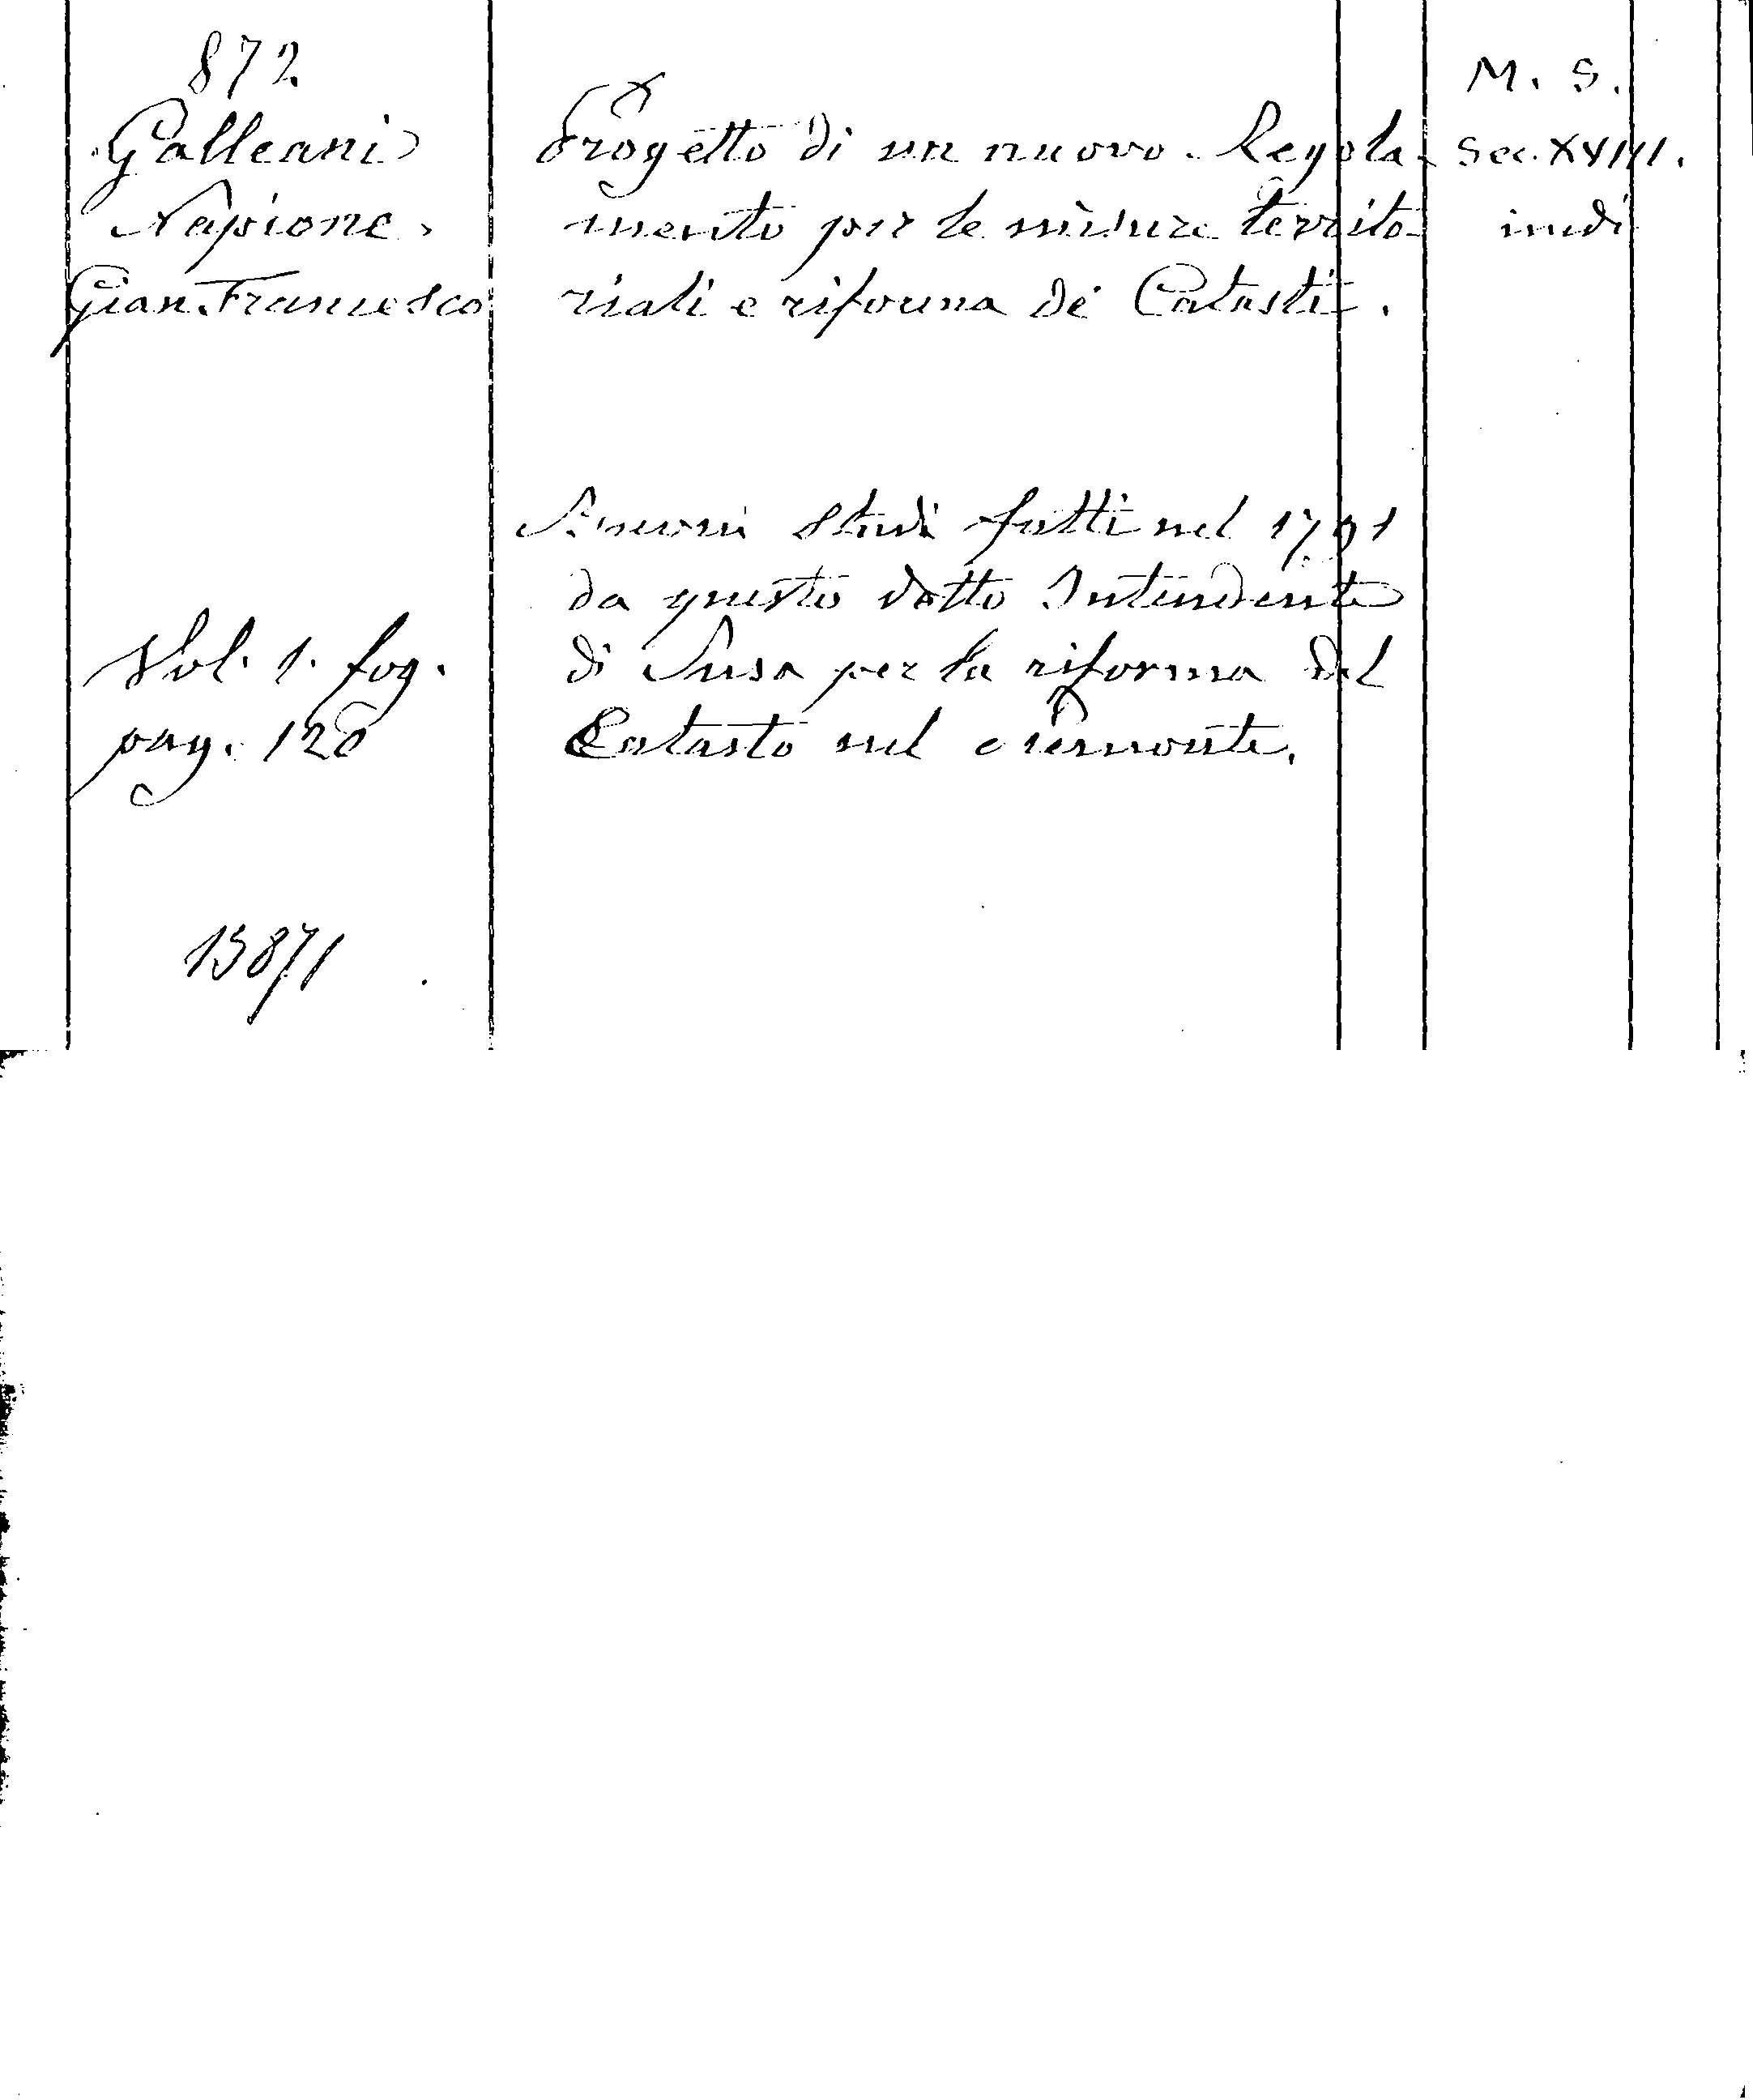 872
Galleani
Napione
Gian. Francesco
Vol. 1. fog.
pag. 128
15871
Progetto di un nuovo Regola-
mento per le misure territo-
riali e riforma de' Catasti.
studi fatti nel 1791
da questo dotto Intendente
di Susa per la riforma del
Catasto nel Piemonte.
M. S.
Sec. XVIII.